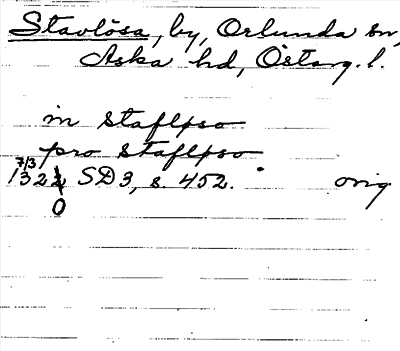 Stavlösa, by, Orlunda sn,
Aska hd, Östarg. l.
in staflpso
pro staflpso
7/3
1322 SD3, s. 452. orig
0